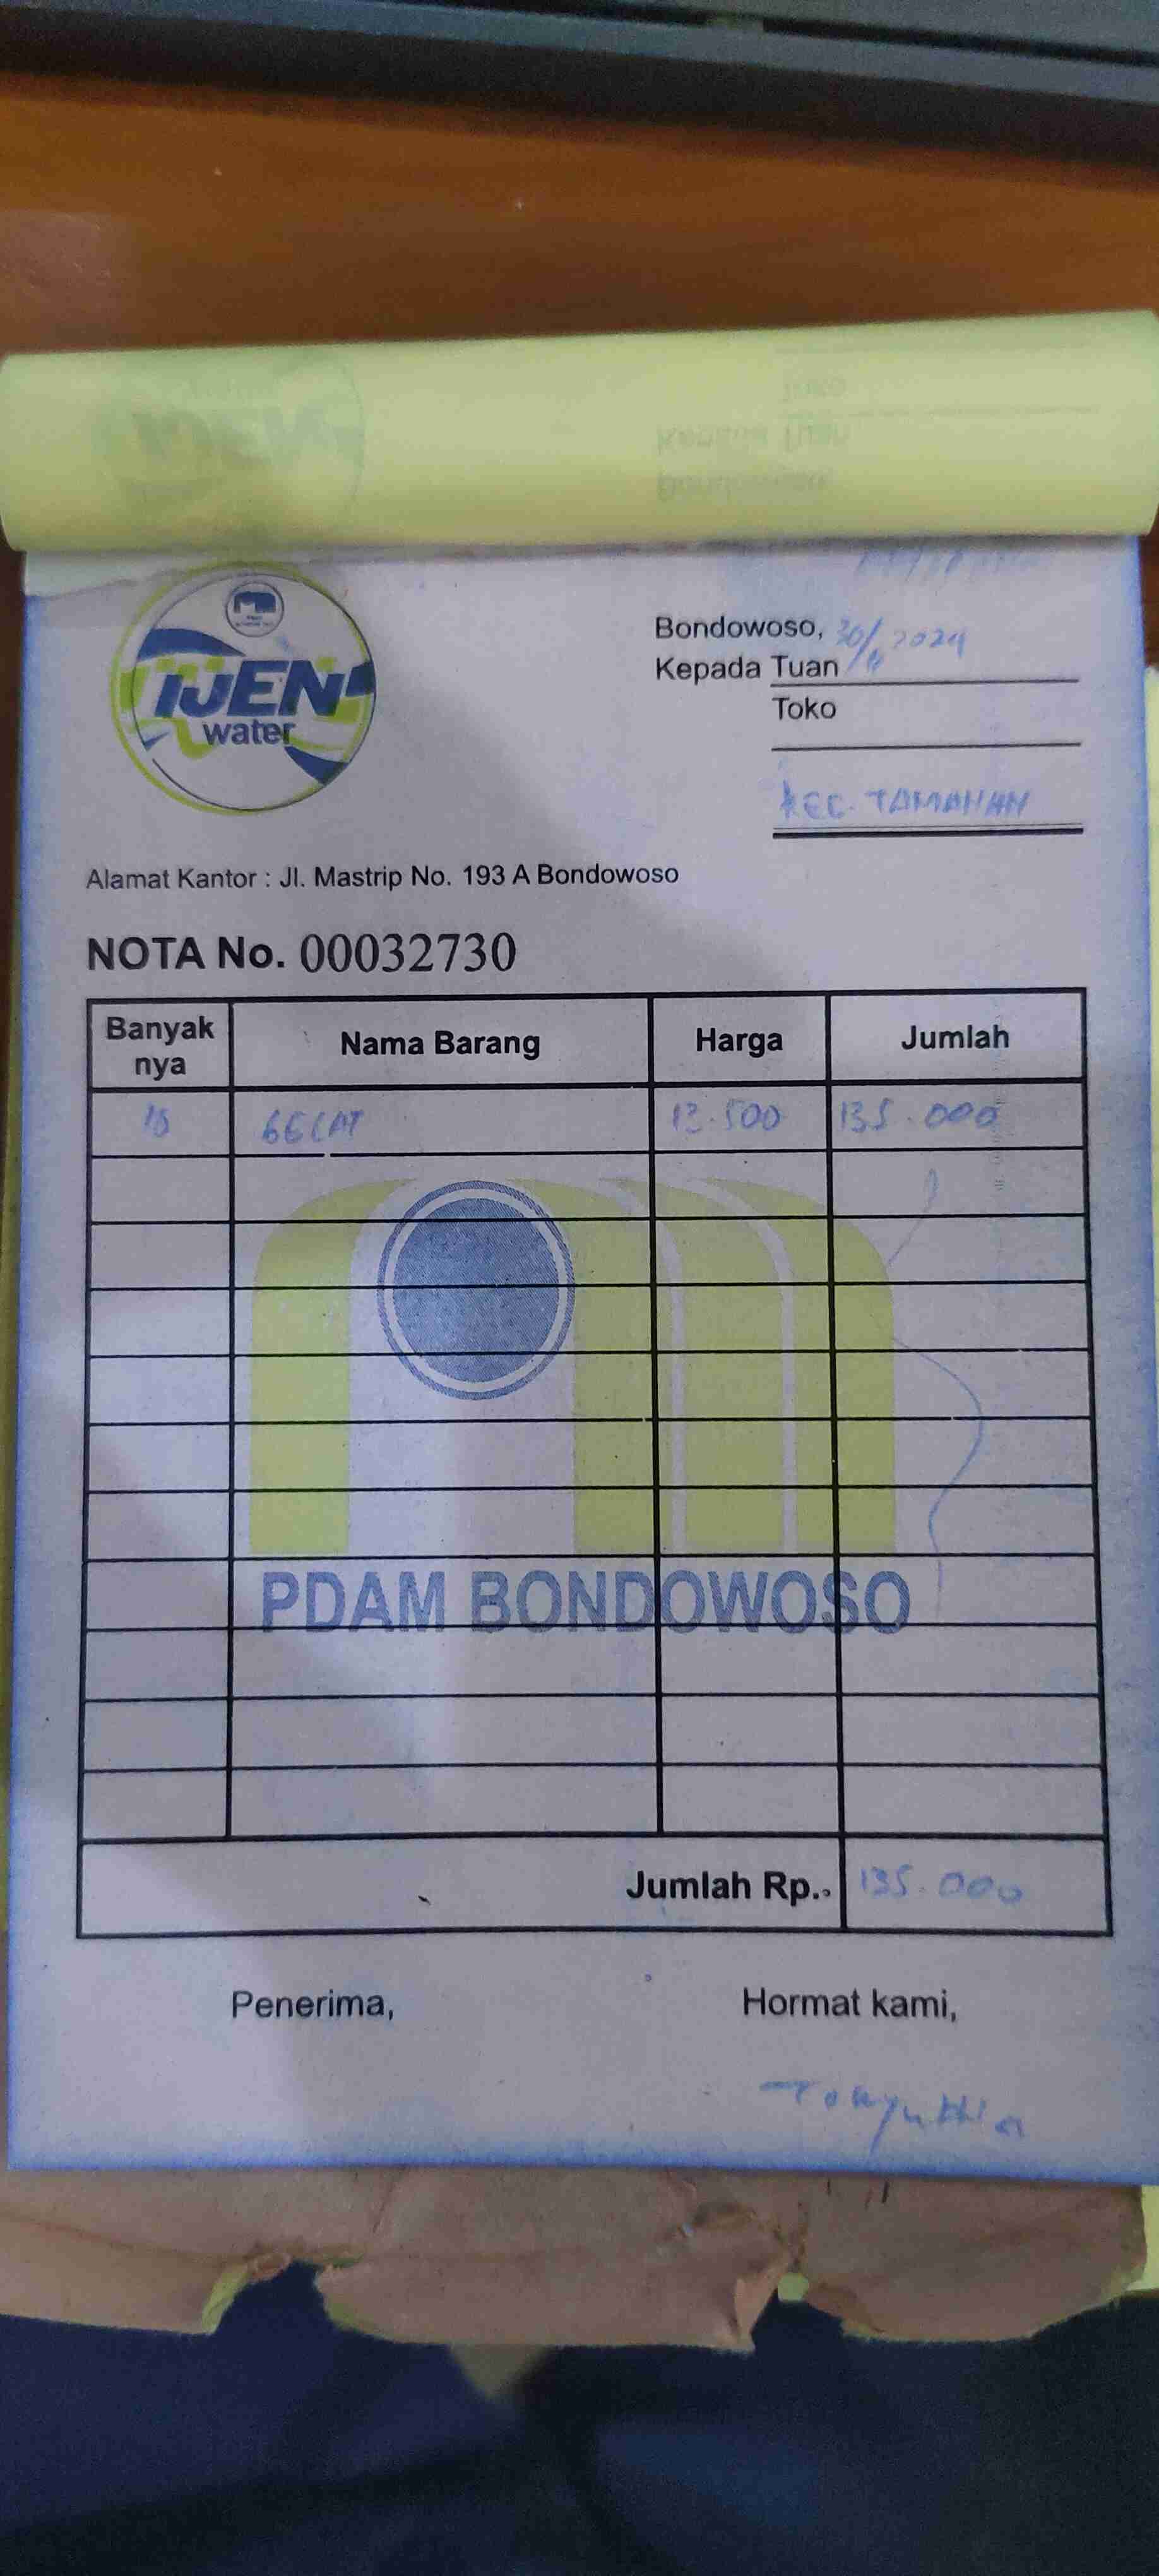 IJEN
water
Bondowoso, 30/ 2024
Kepada Tuan
Toko
KEC. TAMANAN
Alamat Kantor : Jl. Mastrip No. 193 A Bondowoso
NOTA No. 00032730
Banyak nya Nama Barang Harga Jumlah
10 GELAT 13.500 135.000
PDAM BONDOWOSO
Jumlah Rp. 135.000
Penerima, Hormat kami,